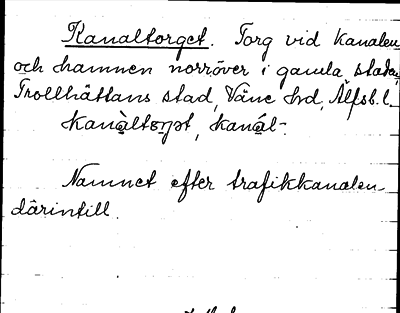 Kanaltorget. Torg vid kanalen
och hamnen norröver i gamla staden,
Trollhättans stad, Väne hd, Älfsb. l.
kanàltorjət, kanál-
Namnet efter trafikkanalen
därintill.